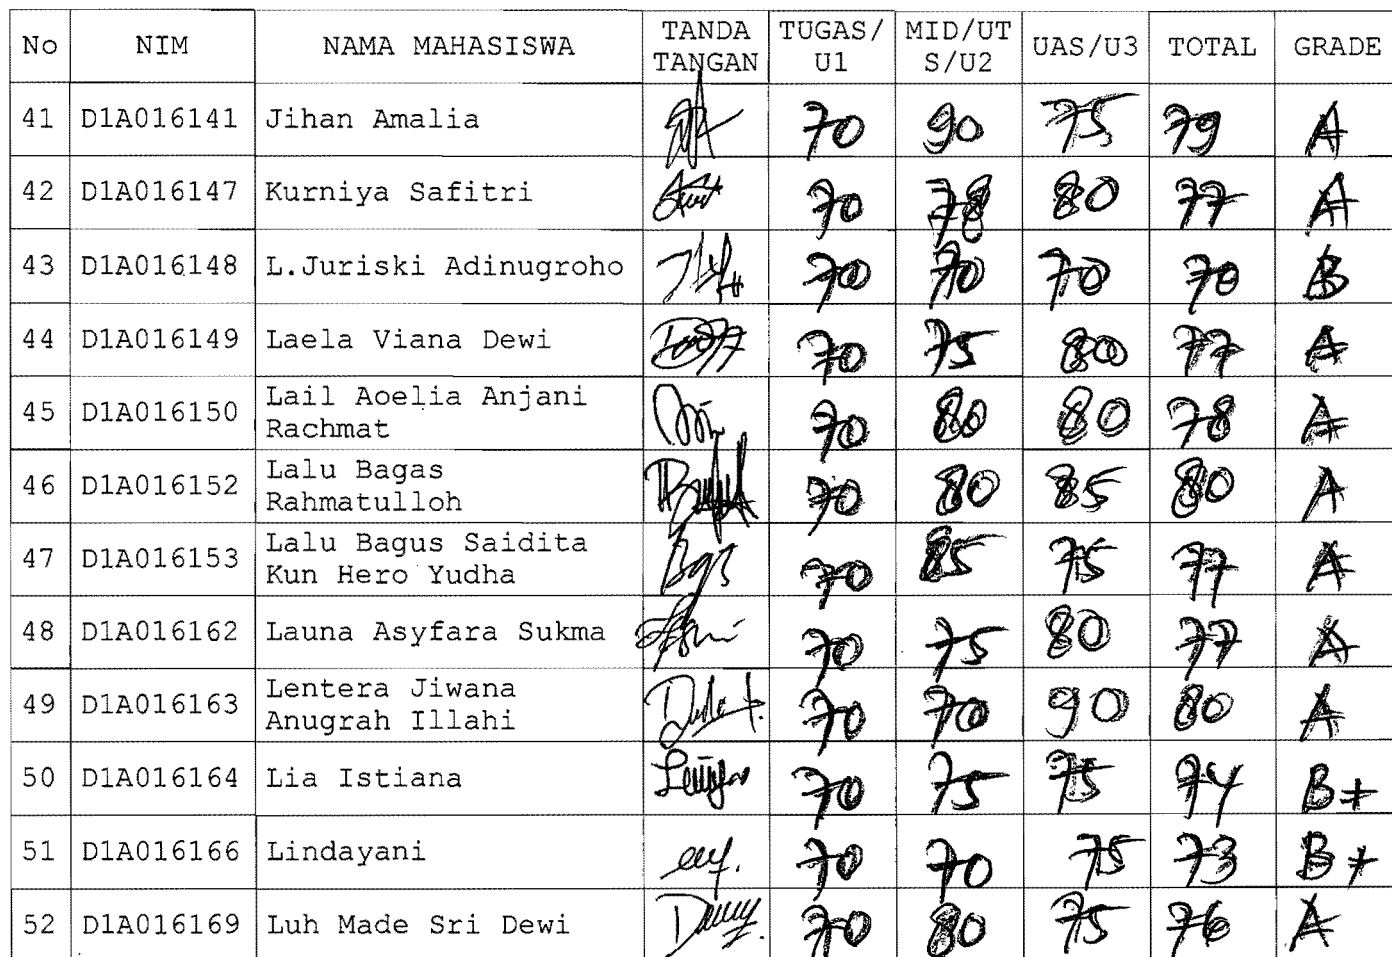 No NIM NAMA MAHASISWA TANDA TANGAN TUGAS/U1 MID/UTS/U2 UAS/U3 TOTAL GRADE
41 D1A016141 Jihan Amalia 70 90 75 79 A
42 D1A016147 Kurniya Safitri 70 78 80 77 A
43 D1A016148 L.Juriski Adinugroho 70 70 70 70 B
44 D1A016149 Laela Viana Dewi 70 75 80 77 A
45 D1A016150 Lail Aoelia Anjani Rachmat 70 80 80 78 A
46 D1A016152 Lalu Bagas Rahmatulloh 70 80 85 80 A
47 D1A016153 Lalu Bagus Saidita Kun Hero Yudha 70 85 75 77 A
48 D1A016162 Launa Asyfara Sukma 70 75 80 77 A
49 D1A016163 Lentera Jiwana Anugrah Illahi 70 70 90 80 A
50 D1A016164 Lia Istiana 70 75 75 74 B+
51 D1A016166 Lindayani 70 70 75 73 B+
52 D1A016169 Luh Made Sri Dewi 70 80 75 76 A